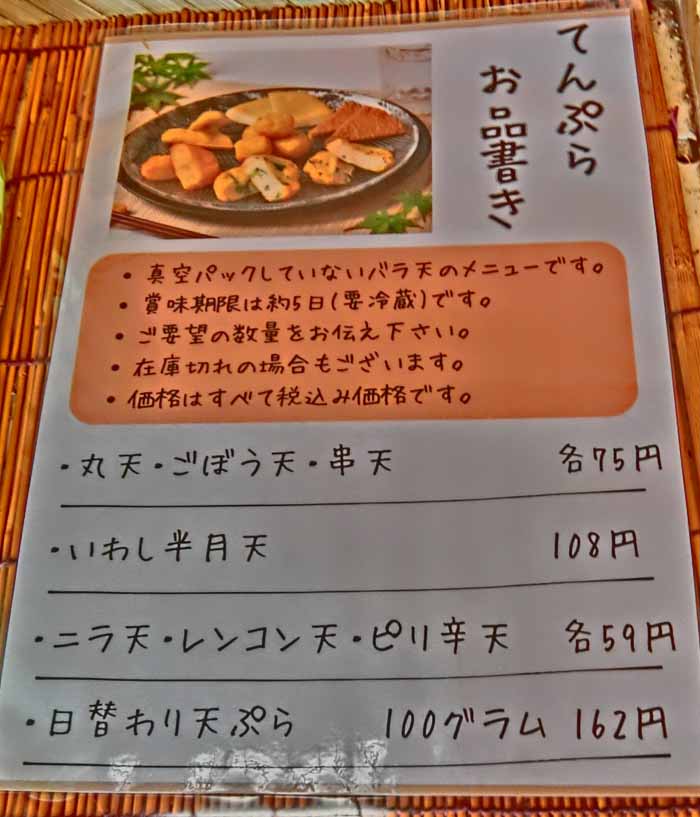 てんぷら
お品書き
・真空パックしていないバラ天のメニューです。
・賞味期限は約5日(要冷蔵)です。
・ご要望の数量をお伝え下さい。
・在庫切れの場合もございます。
・価格はすべて税込み価格です。
・丸天・ごぼう天・串天 各75円
・いわし半月天 108円
・ニラ天・レンコン天・ピリ辛天 各59円
・日替わり天ぷら 100グラム 162円